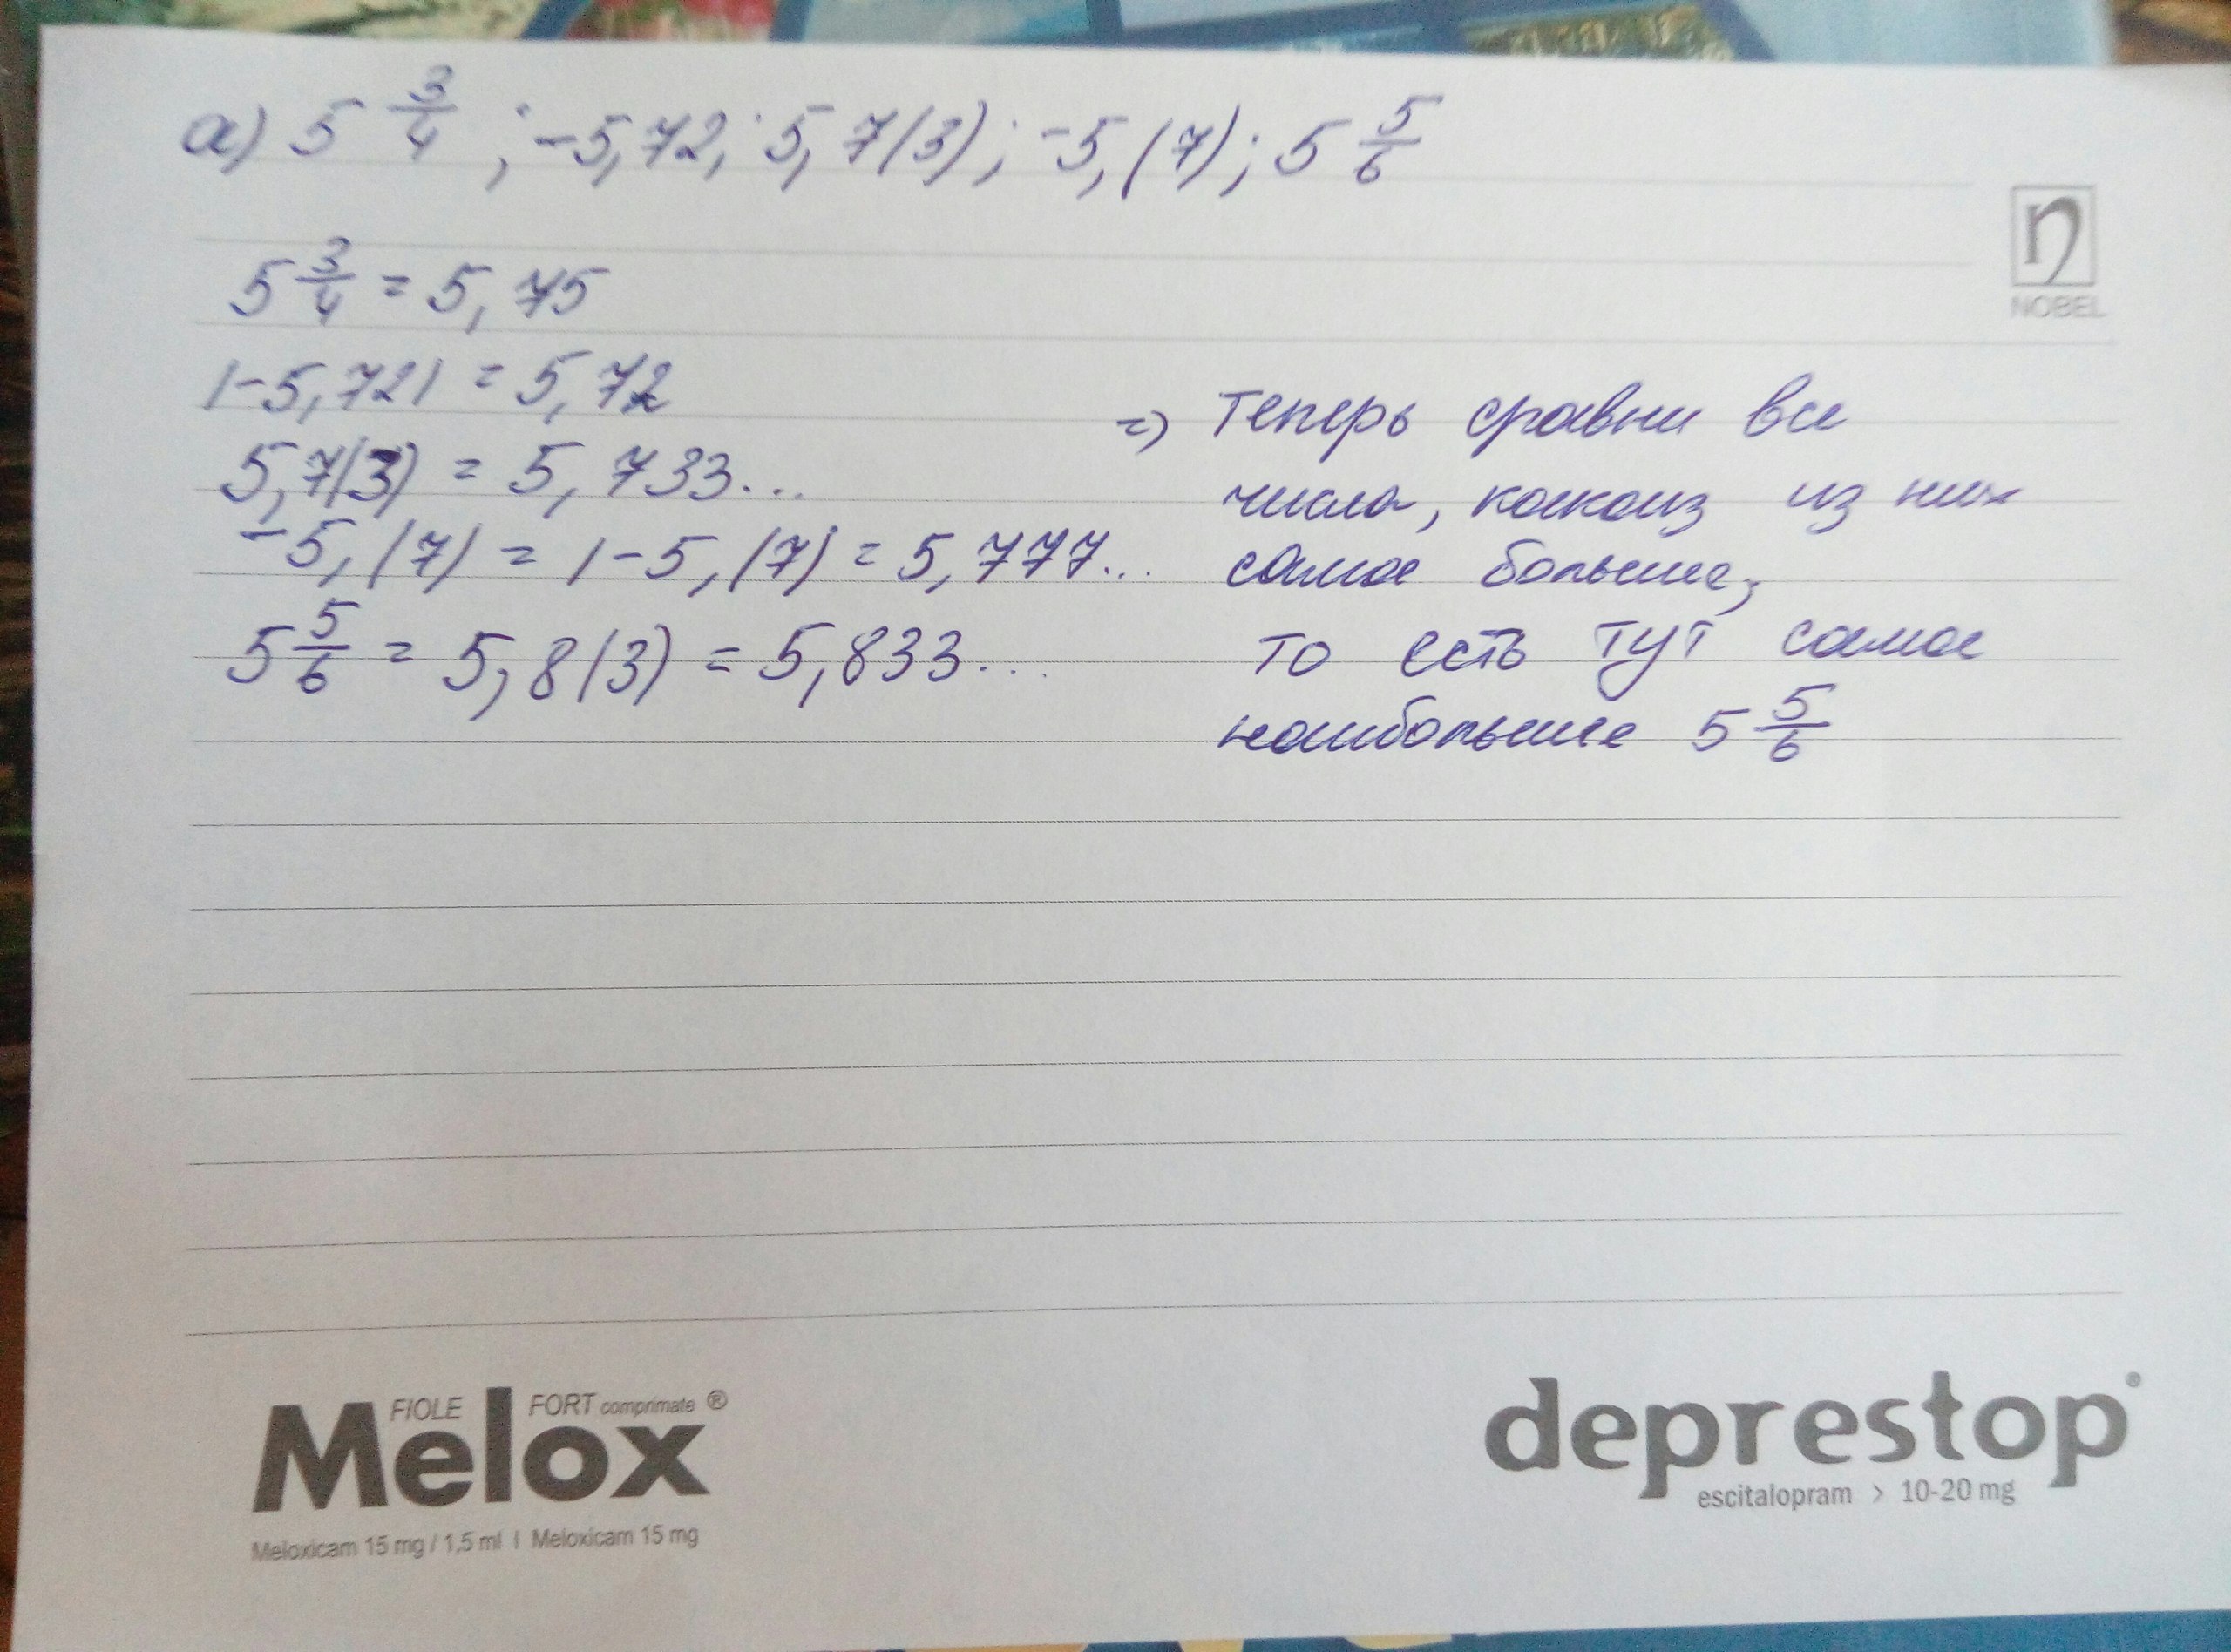 а) 5 3/4 ; -5,72; 5,7(3); -5,(7); 5 5/6
NOBEL
5 3/4 = 5,75
|-5,72| = 5,72
5,7(3) = 5,733...
-5,(7) = |-5,(7) = 5,777...
5 5/6 = 5,8(3) = 5,833...
=) Теперь сравни все
числа, какоиз из них
самое большее,
то есть тут самое
наибольшее 5 5/6
Melox FIOLE FORT comprimate ®
Meloxicam 15 mg / 1,5 ml | Meloxicam 15 mg
deprestop®
escitalopram > 10-20 mg